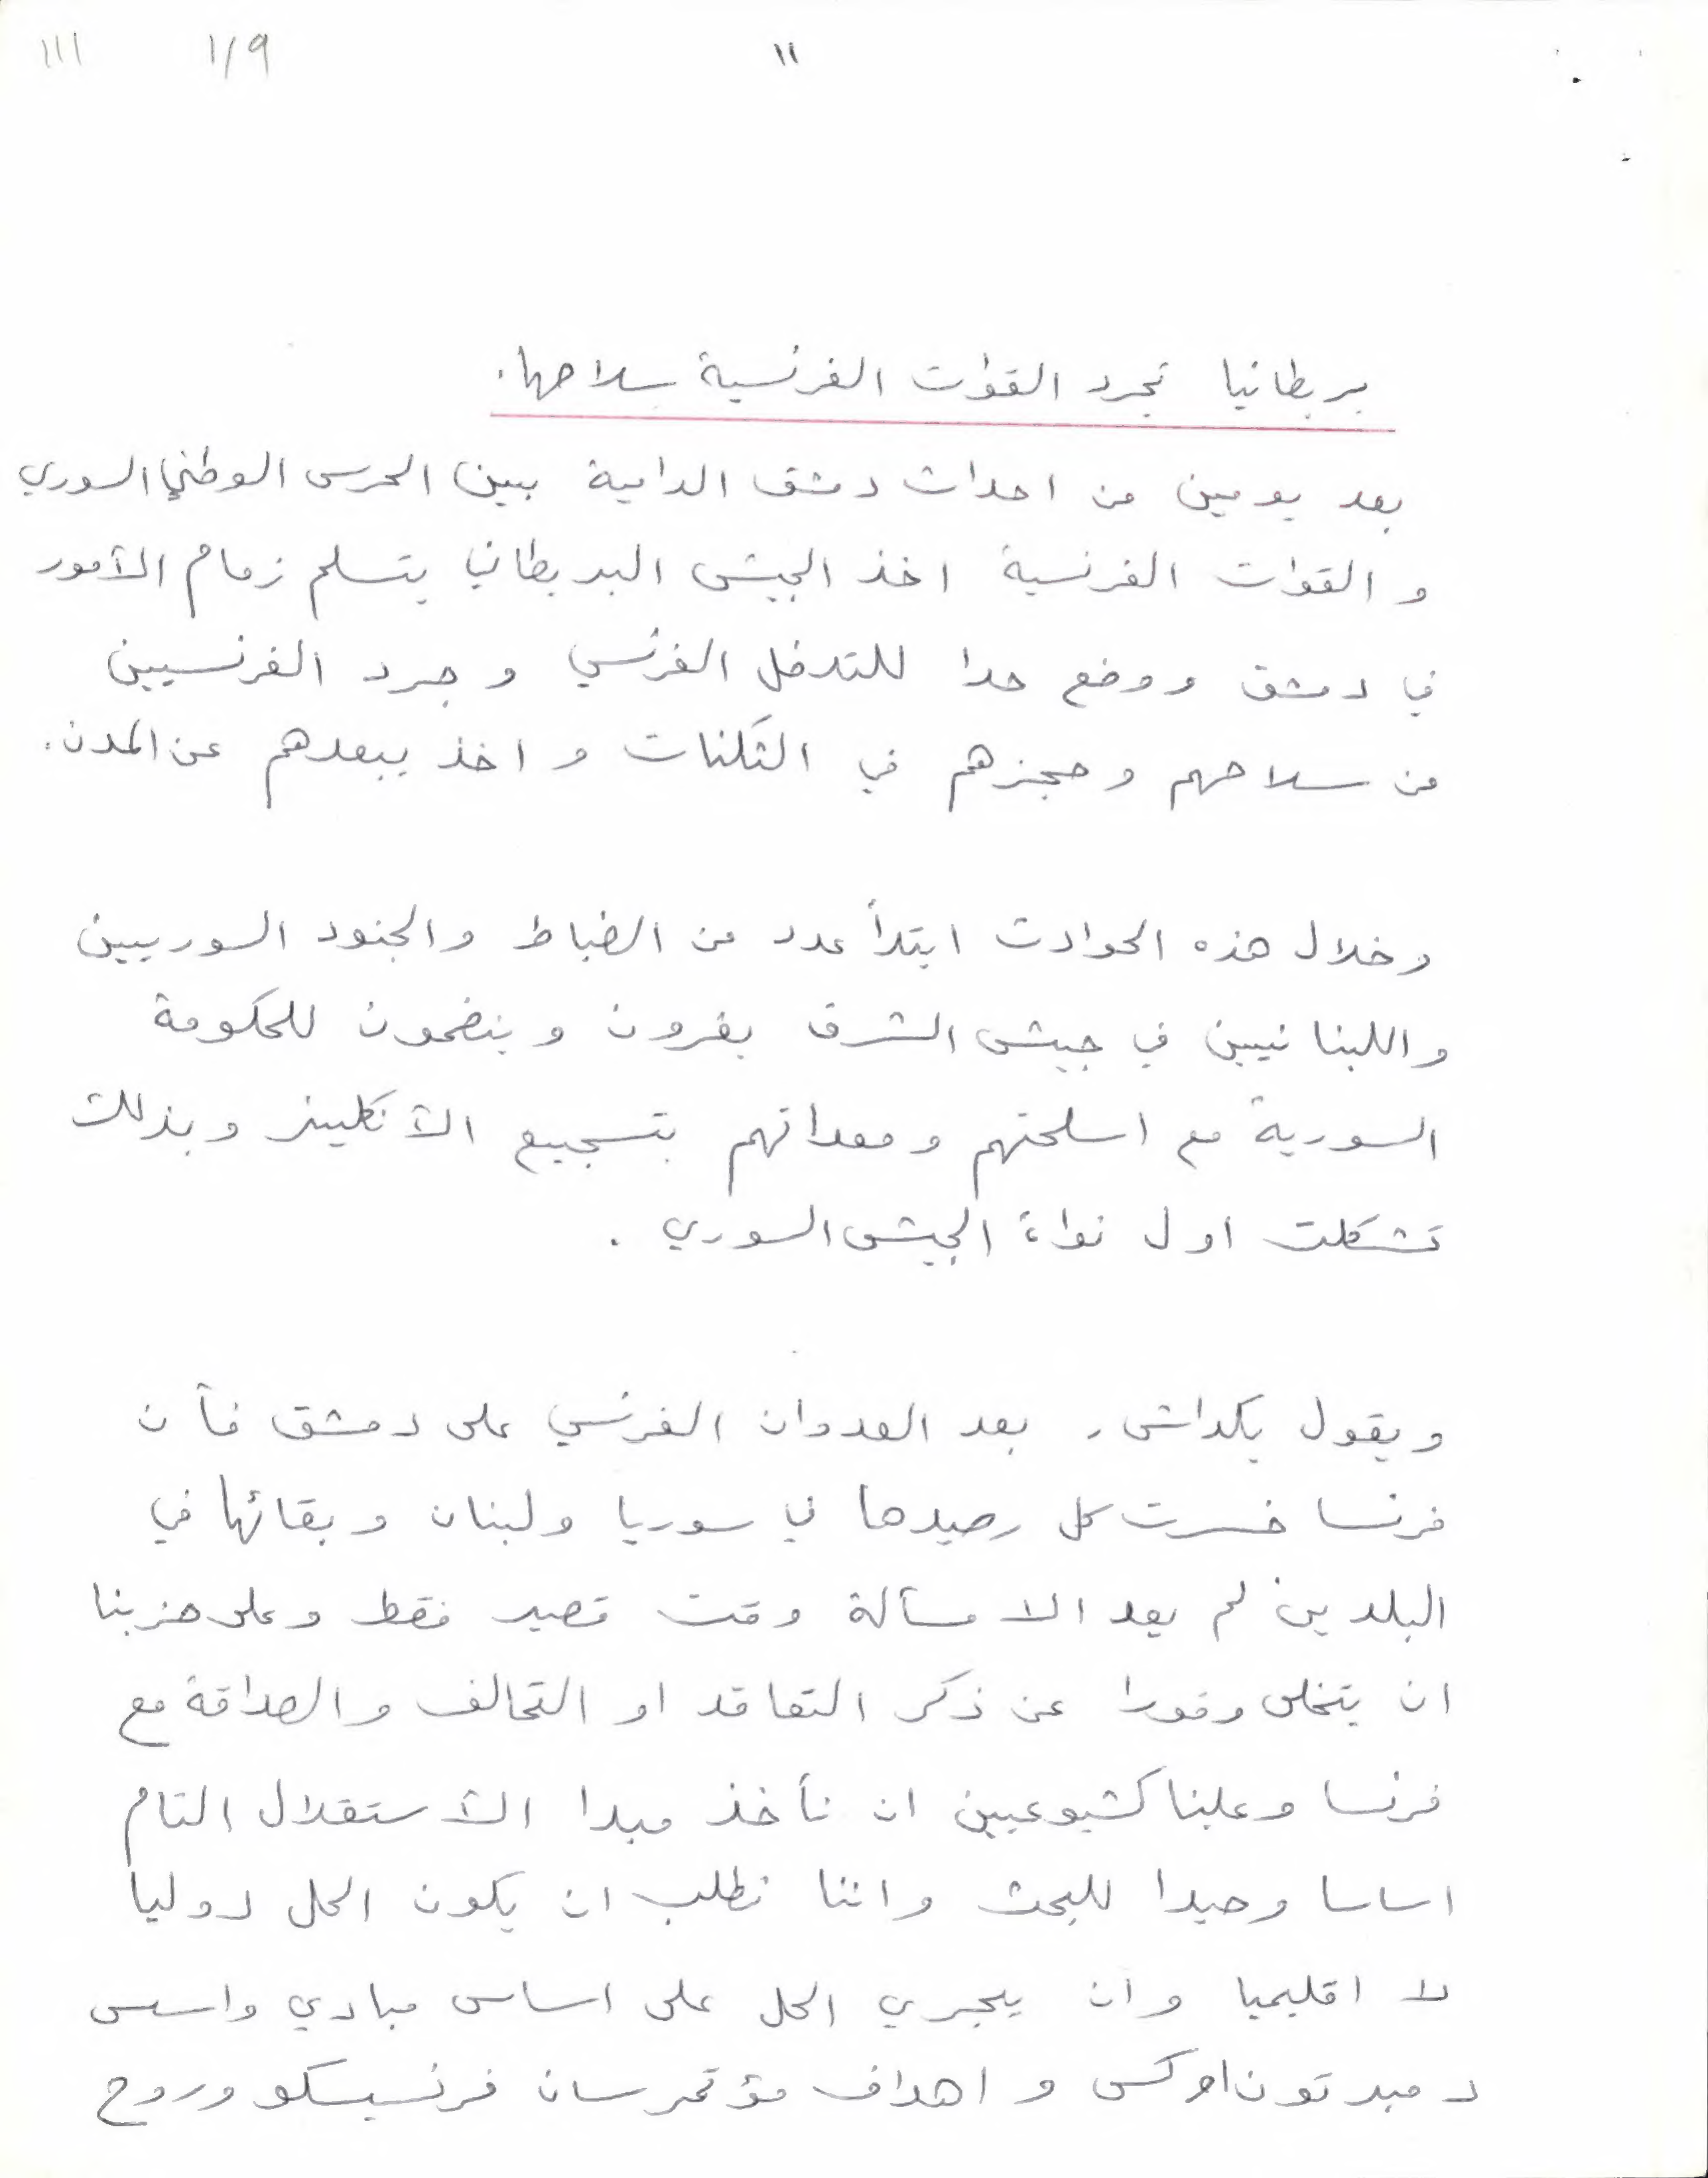 ١١١ ١/٩ ١١
بريطانيا تجرد القوات الفرنسية سلاحها.
بعد يومين من احداث دمشق الدامية بين الحرس الوطني السوري
و القوات الفرنسية اخذ الجيش البريطاني يتسلم زمام الأمور
في دمشق ووضع حدا للتدخل الفرنسي و جرد الفرنسيين
من سلاحهم وحجزهم في الثكنات و اخذ يبعدهم عن المدن.
وخلال هذه الحوادث ابتدأ عدد من الضباط والجنود السوريين
واللبنانيين في جيش الشرق يفرون وينضمون للحكومة
السورية مع اسلحتهم ومعداتهم بتسجيع الأنكليز وبذلك
تشكلت اول نواة الجيش السوري .
ويقول بكداش , بعد العدوان الفرنسي على دمشق فأن
فرنسا خسرت كل رصيدها في سوريا ولبنان وبقائها في
البلدين لم يعد الا مسألة وقت قصير فقط وعلى حزبنا
ان يتخلى وفورا عن ذكر التعاقد او التحالف والصداقة مع
فرنسا وعلينا كشيوعيين ان نأخذ مبدا الأستقلال التام
اساسا وحيدا للبحث واننا نطلب ان يكون الحل دوليا
لا اقليميا وان يجري الحل على اساس مبادي واسس
دمبرتون اوكس و اهداف مؤتمر سان فرنسيسكو وروح